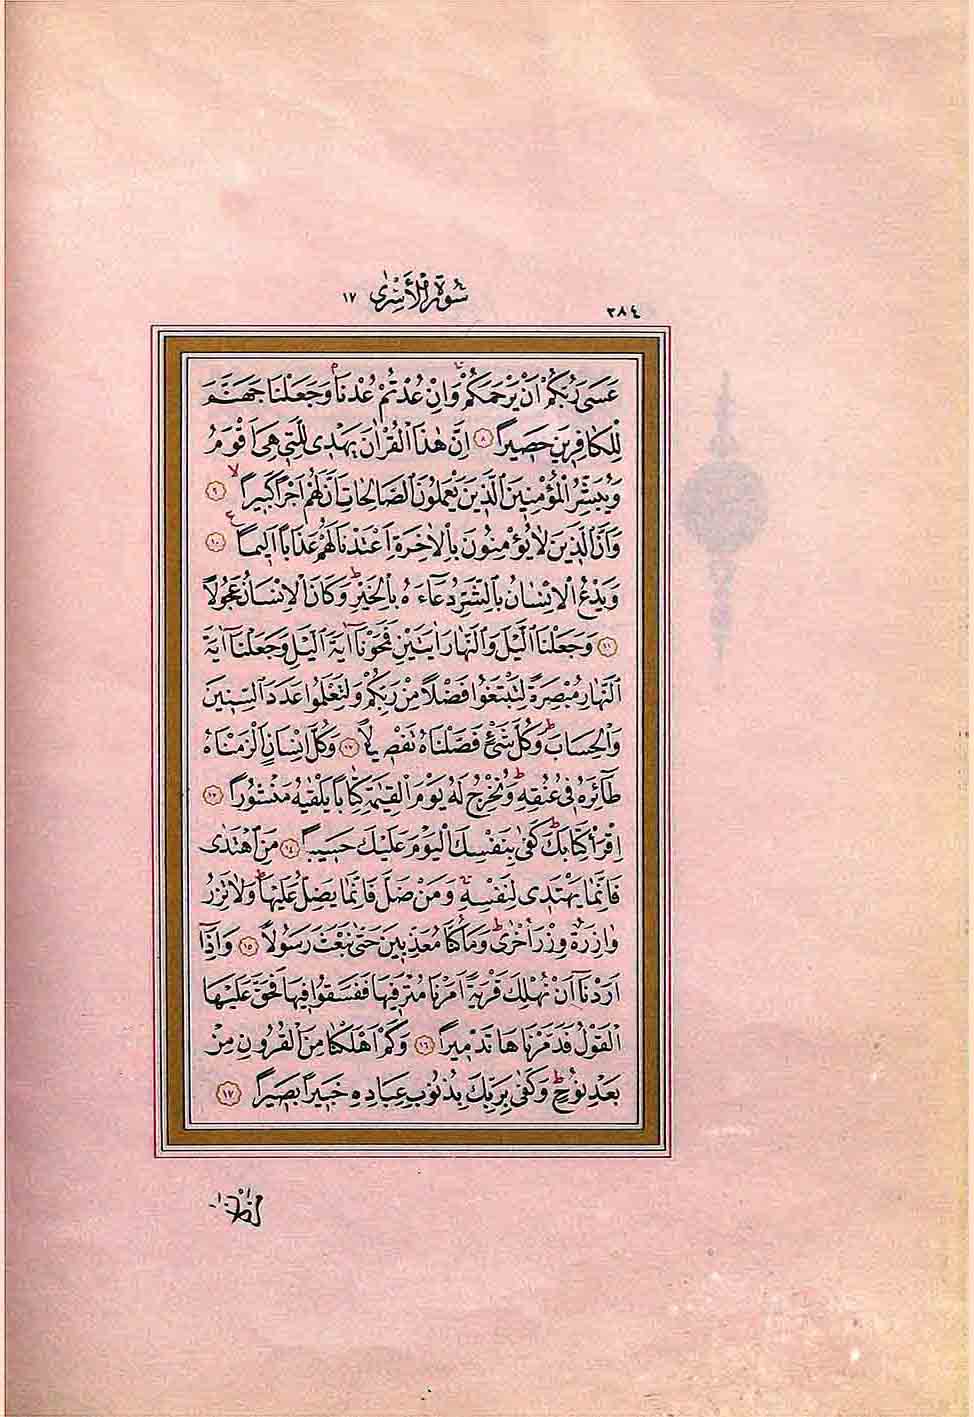 ٢٨٤
سُورَةُ الْأَسْرٰى ١٧
عَسٰى رَبُّكُمْ اَنْ يَرْحَمَكُمْ وَاِنْ عُدْتُمْ عُدْنَاۢ وَجَعَلْنَا جَهَنَّمَ
لِلْكَافِرِينَ حَصِيراً ٨ اِنَّ هٰذَا الْقُرْاٰنَ يَهْدِى لِلَّتِى هِىَ اَقْوَمُ
وَيُبَشِّرُ الْمُؤْمِنِينَ الَّذِينَ يَعْمَلُونَ الصَّالِحَاتِ اَنَّ لَهُمْ اَجْراً كَبِيراًۙ ٩
وَاَنَّ الَّذِينَ لَا يُؤْمِنُونَ بِالْاٰخِرَةِ اَعْتَدْنَا لَهُمْ عَذَاباً اَلِيماًࣖ ١٠
وَيَدْعُ الْاِنْسَانُ بِالشَّرِّ دُعَٓاءَهُ بِالْخَيْرِۜ وَكَانَ الْاِنْسَانُ عَجُولاً
١١ وَجَعَلْنَا الَّيْلَ وَالنَّهَارَ اٰيَتَيْنِ فَمَحَوْنَٓا اٰيَةَ الَّيْلِ وَجَعَلْنَٓا اٰيَةَ
النَّهَارِ مُبْصِرَةً لِتَبْتَغُوا فَضْلاً مِنْ رَبِّكُمْ وَلِتَعْلَمُوا عَدَدَ السِّنِينَ
وَالْحِسَابَۜ وَكُلَّ شَىْءٍ فَصَّلْنَاهُ تَفْصِيلاً ١٢ وَكُلَّ اِنْسَانٍ اَلْزَمْنَاهُ
طَٓائِرَهُ فِى عُنُقِهِۜ وَنُخْرِجُ لَهُ يَوْمَ الْقِيٰمَةِ كِتَاباً يَلْقٰيهُ مَنْشُوراً ١٣
اِقْرَأْ كِتَابَكَۜ كَفٰى بِنَفْسِكَ الْيَوْمَ عَلَيْكَ حَسِيباً ١٤ مَنِ اهْتَدٰى
فَاِنَّمَا يَهْتَدِى لِنَفْسِهِۚ وَمَنْ ضَلَّ فَاِنَّمَا يَضِلُّ عَلَيْهَاۜ وَلَا تَزِرُ
وَازِرَةٌ وِزْرَ اُخْرٰىۜ وَمَا كُنَّا مُعَذِّبِينَ حَتّٰى نَبْعَثَ رَسُولاً ١٥ وَاِذَٓا
اَرَدْنَٓا اَنْ نُهْلِكَ قَرْيَةً اَمَرْنَا مُتْرَفِيهَا فَفَسَقُوا فِيهَا فَحَقَّ عَلَيْهَا
الْقَوْلُ فَدَمَّرْنَاهَا تَدْمِيراً ١٦ وَكَمْ اَهْلَكْنَا مِنَ الْقُرُونِ مِنْ
بَعْدِ نُوحٍۜ وَكَفٰى بِرَبِّكَ بِذُنُوبِ عِبَادِهِ خَبِيراً بَصِيراً ١٧